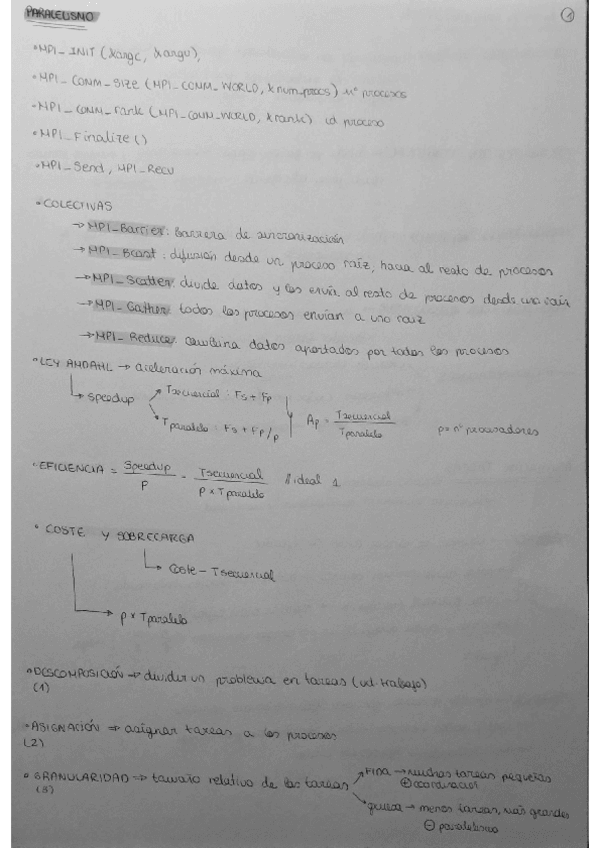 PARALELISMO
1
• MPI_INIT (&argc, &argv),
• MPI_Comm_Size (MPI_COMM_WORLD, &num_procs) nº procesos
• MPI_Comm_rank (MPI_COMM_WORLD, &rank) id proceso
• MPI_Finalize ()
• MPI_Send, MPI_Recv
• COLECTIVAS
→ MPI_Barrier: Barrera de sincronización
→ MPI_Bcast: difusión desde un proceso raíz, hacia al resto de procesos
→ MPI_Scatter: divide datos y los envía al resto de procesos desde una raíz
→ MPI_Gather: todos los procesos envían a una raíz
→ MPI_Reduce: combina datos aportados por todos los procesos
• LEY AMDAHL → aceleración máxima
↳ speedup
Tsecuencial: Fs + Fp
Tparalelo: Fs + Fp/p
Ap = Tsecuencial / Tparalelo
p = nº procesadores
• EFICIENCIA = Speedup / P = Tsecuencial / P x Tparalelo // ideal 1
• COSTE Y SOBRECARGA
↳ Coste - Tsecuencial
→ p x Tparalelo
• DESCOMPOSICIÓN → dividir un problema en tareas (ud. trabajo)
(1)
• ASIGNACIÓN ⇒ asignar tareas a los procesos
(2)
• GRANULARIDAD ⇒ tamaño relativo de las tareas
(3)
FINA → muchas tareas pequeñas
⊕ coordinación
gruesa → menos tareas, más grandes
⊖ paralelismo